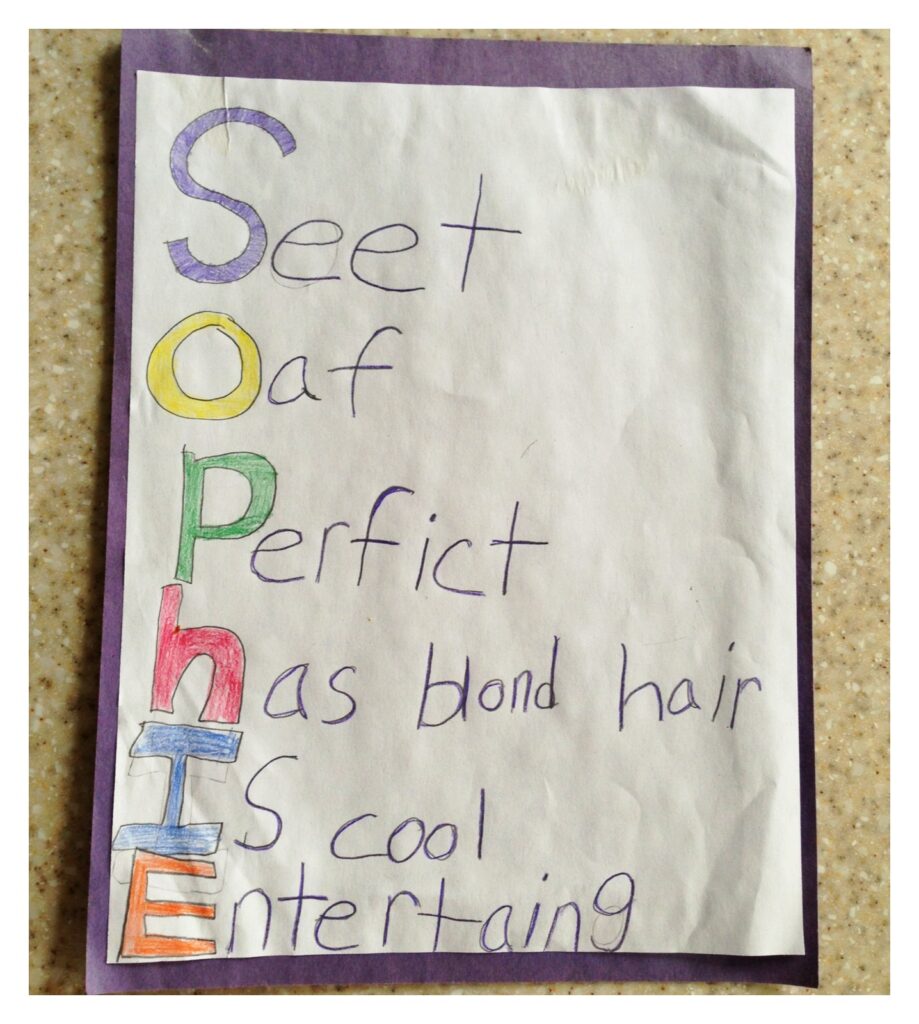 Seet
Oaf
Perfict
has blond hair
IS cool
Entertaing